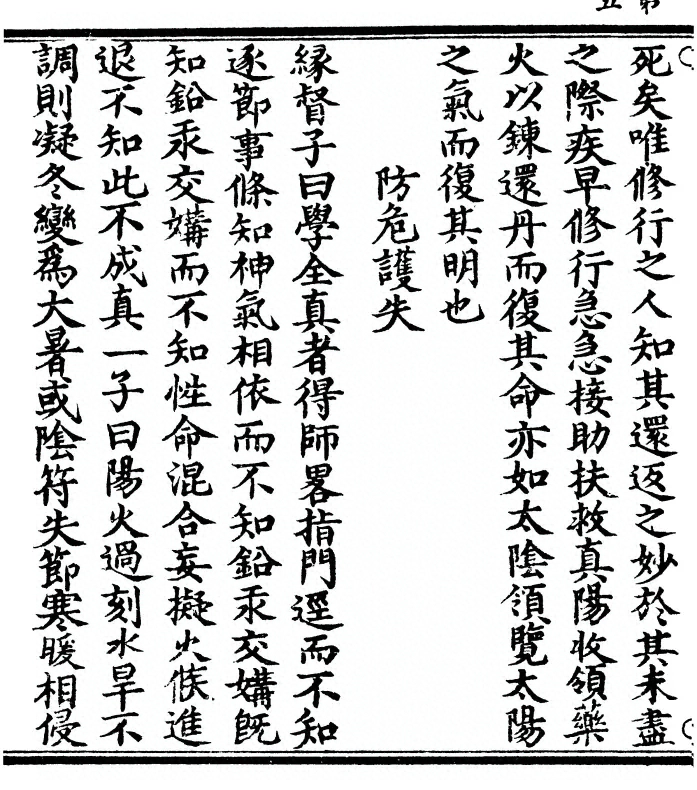 死矣唯修行之人知其還返之妙於其未盡
之際疾早修行急急接助扶救真陽收領藥
火以鍊還丹而復其命亦如太陰領覽太陽
之氣而復其明也
防危護失
緣督子曰學全真者得師畧指門逕而不知
逐節事條知神氣相依而不知鉛汞交媾旣
知鉛汞交媾而不知性命混合妄擬火候進
退不知此不成真一子曰陽火過刻水旱不
調則凝冬變為大暑或陰符失節寒暖相侵